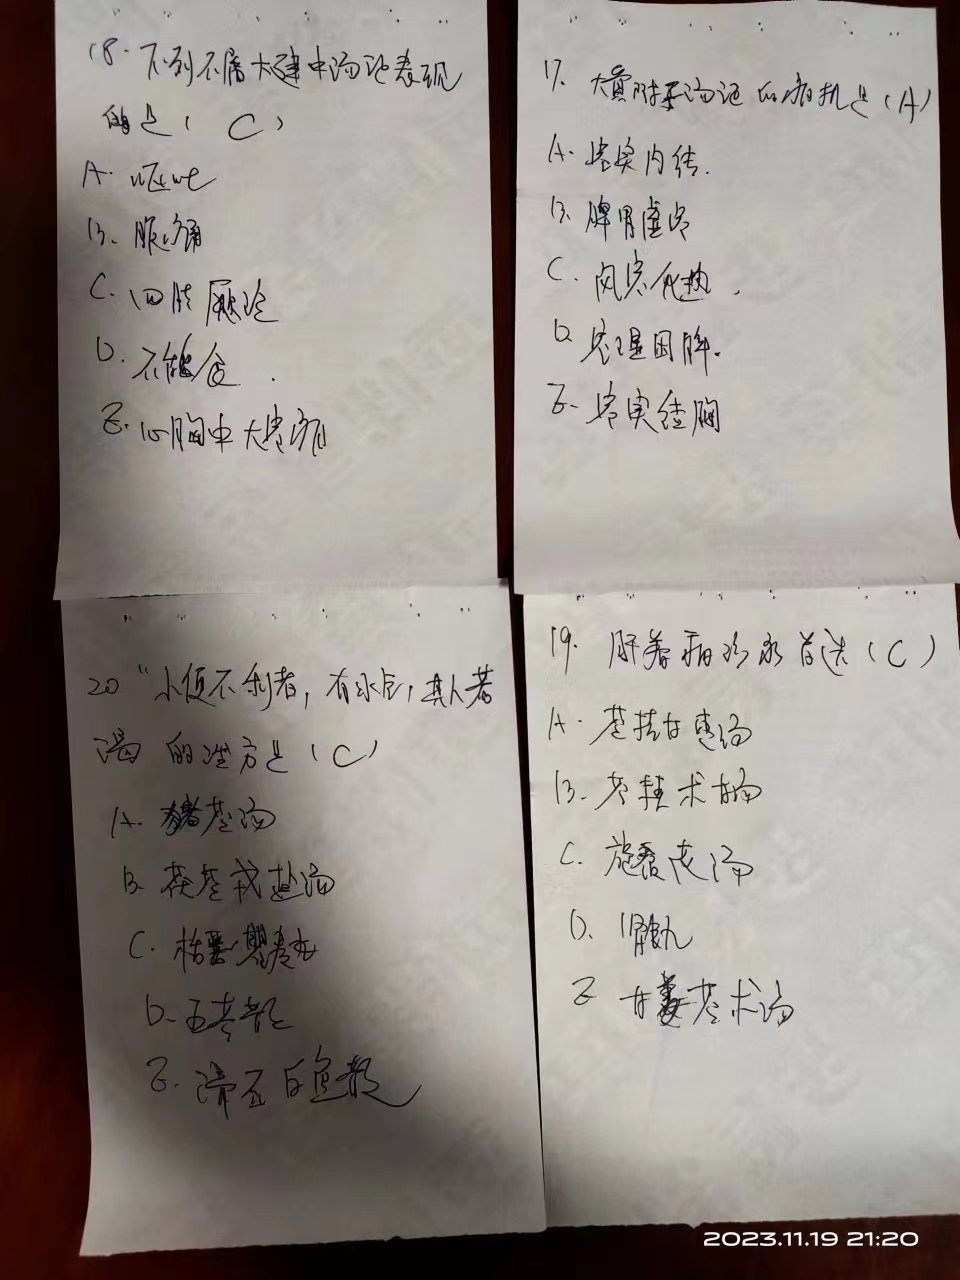 18. 下列不属大建中汤证表现
的是（ C ）
A. 呕吐
B. 腹痛
C. 四肢厥冷
D. 不能食.
E. 心胸中大寒痛
17. 大黄附子汤证的病机是（A）
A. 寒实内结.
B. 脾胃虚寒
C. 风寒化热.
D. 寒湿困脾.
E. 寒实结胸
20 "小便不利者，有水气，其人苦
渴 的 方是（C）
A. 猪苓汤
B. 茯苓戎盐汤
C. 栝蒌瞿麦丸
D. 五苓散
E. 滑石白鱼散
19. 肝着病 首选（C）
A. 苓桂甘枣汤
B. 苓桂术甘汤
C. 旋覆花汤
D. 肾气丸
E 甘姜苓术汤
2023.11.19 21:20